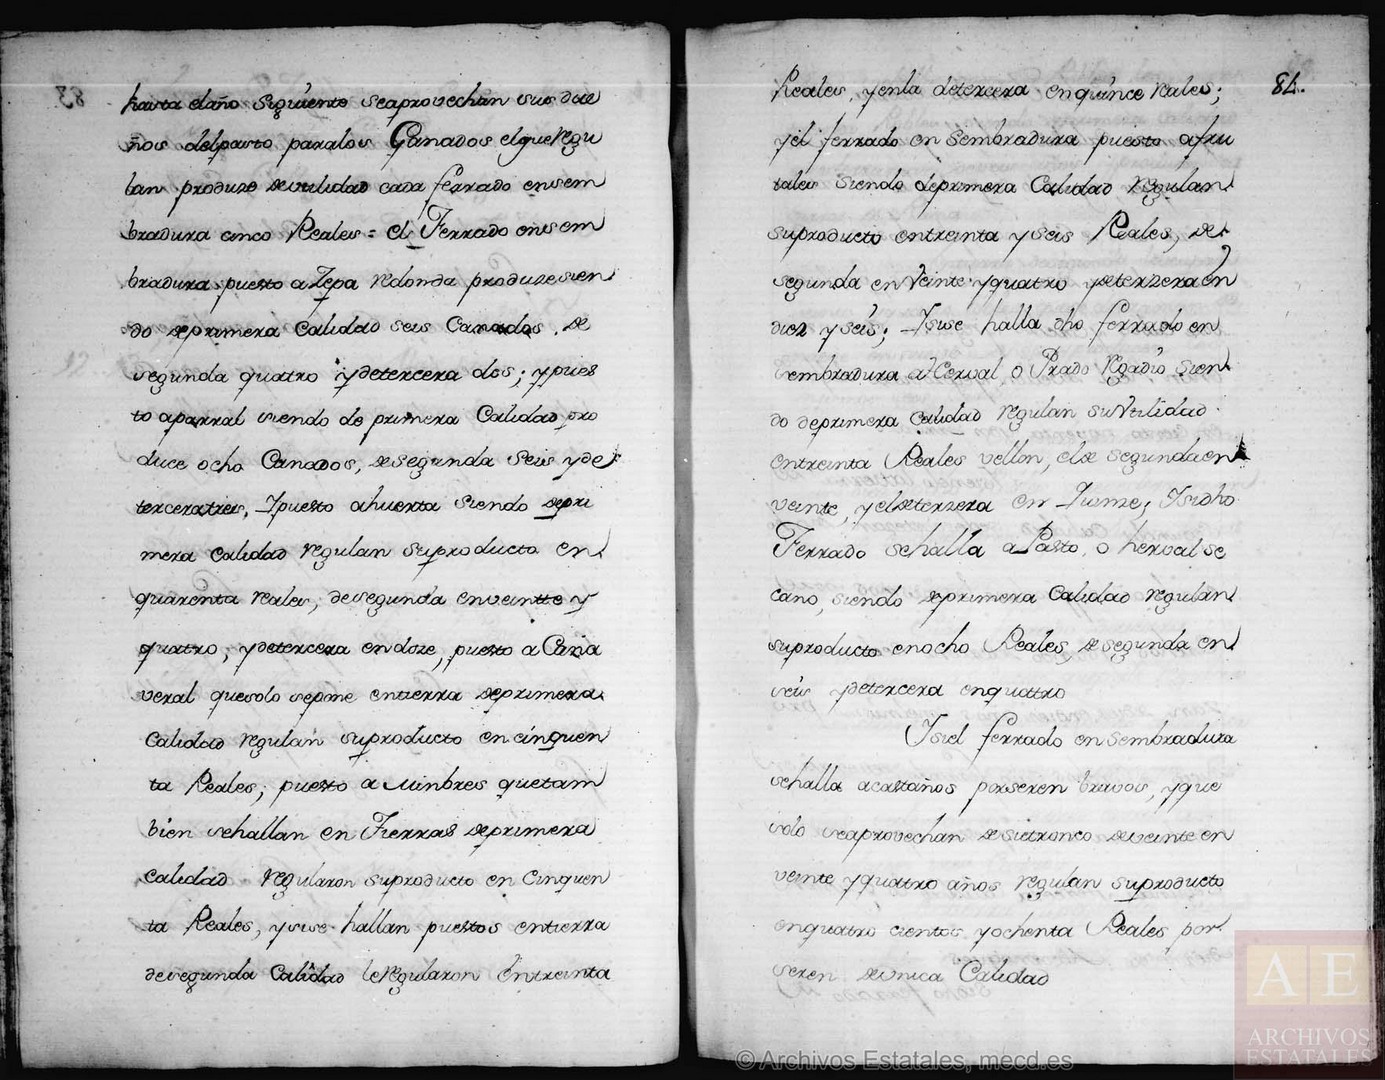 hasta el año siguiente se aprovechan sus due
ños del pasto para los Ganados el que regu
lan produze de utilidad cada ferrado en sem
bradura cinco Reales = el Ferrado en sem
bradura puesto a Zepa redonda produze sien
do de primera Calidad seis Canados, de
segunda quatro y de tercera dos; y pues
to a parral siendo de primera Calidad pro
duce ocho Canados, de segunda seis y de
tercera tres, Y puesto a huerta siendo de pri
mera calidad regulan su producto en
quarenta reales, de segunda en veintte y
quatro, y de tercera en doze, puesto a Caña
veral que solo se pone en tierra de primera
Calidad regulan su producto en cinquen
ta Reales; puesto a Mimbres que tam
bien se hallan en Tierras de primera
calidad regularon su producto en Cinquen
ta Reales, y si se hallan puestos en tierra
de segunda Calidad le regularon en treinta
84.
Reales, y en la de tercera en quince reales;
y el ferrado en sembradura puesto a fru
tales siendo de primera Calidad regulan
su producto en treinta y seis Reales, de
segunda en Veinte y quatro y de terzera en
diez y seis; Y si se halla dho ferrado en
sembradura a Herval o Prado Regadio sien
do de primera Calidad regulan su Utilidad
en treinta Reales vellon, el de segunda en
veinte, y el de terzera en Y si dho
Ferrado se halla a Pasto, o herval se
cano, siendo de primera Calidad regulan
su producto en ocho Reales, de segunda en
seis y de tercera en quattro
Y si el ferrado en sembradura
se halla a castaños por seren bravos, y que
solo se aprovechan de su tronco de veinte en
veinte y quatro años regulan su producto
en quatro cientos y ochenta Reales por
seren de unica Calidad
© Archivos Estatales, mecd.es
AE
ARCHIVOS
ESTATALES